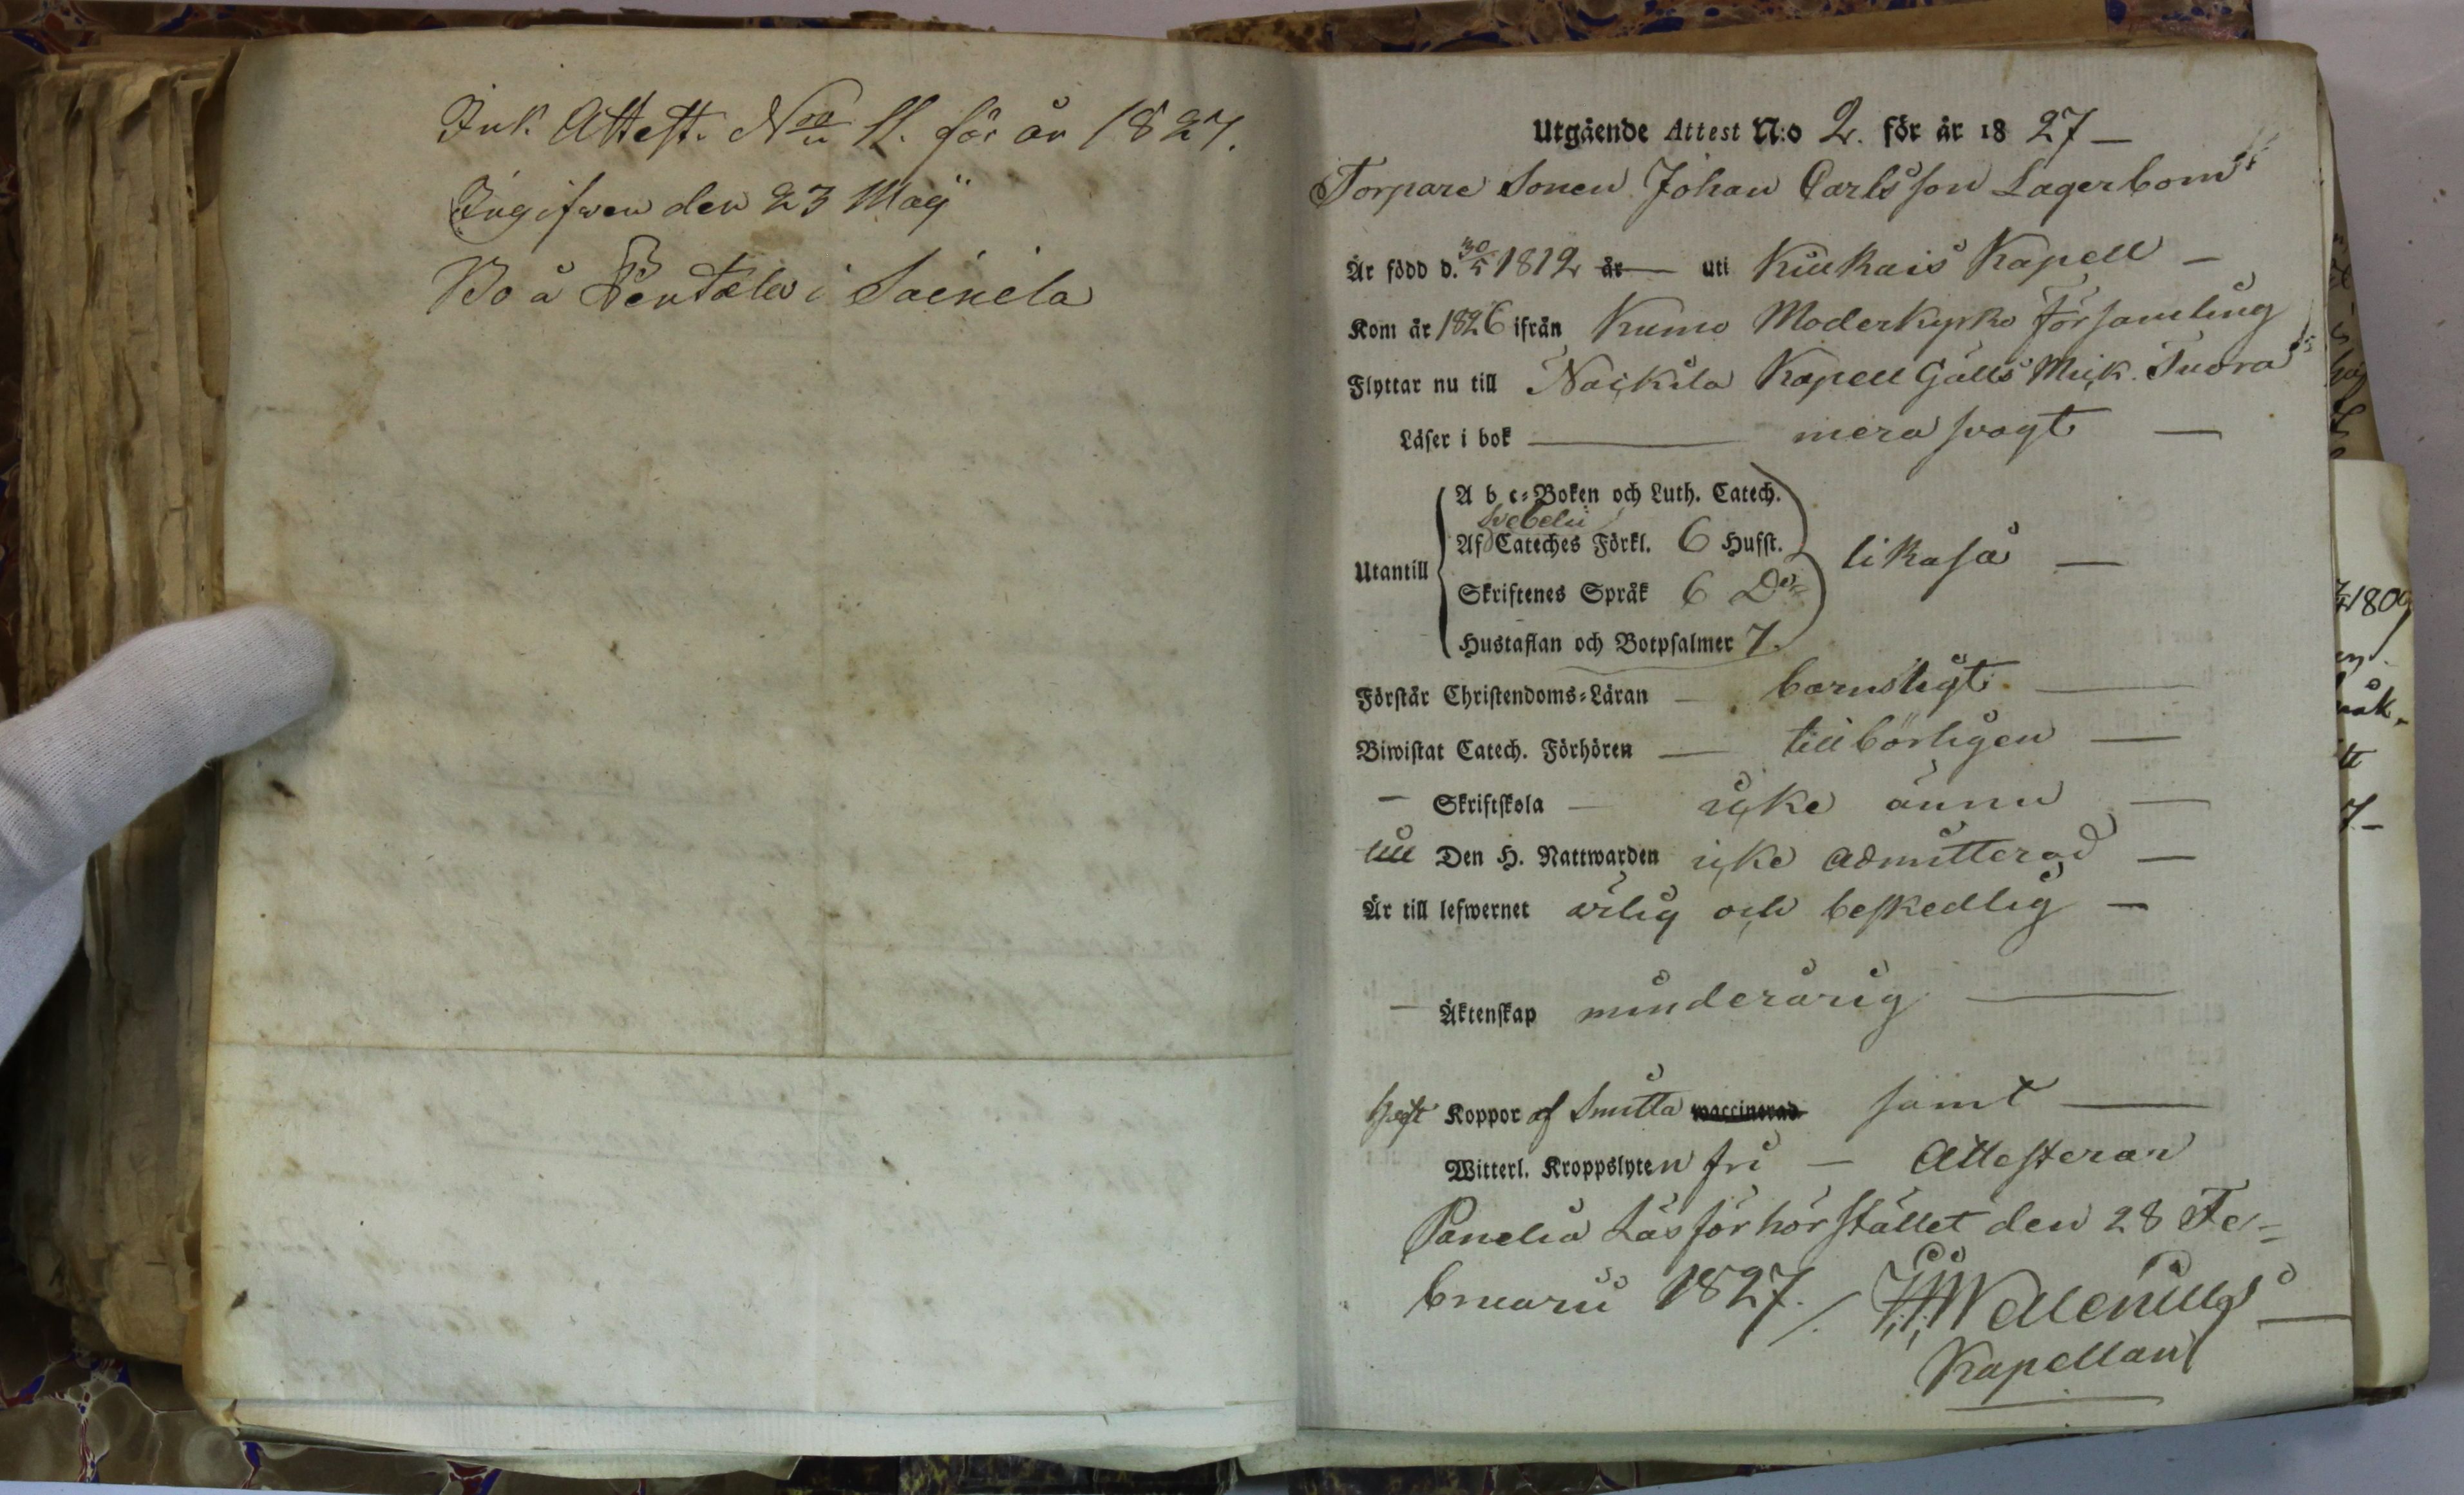 Ink. Attest. Nro 11. för år 1827.
Ingifven den 23 Maij
Bo å Pentala i Soinila
Utgående Attest N:o 2. för år 1827 —
Torpare Sonen Johan Carlsson Lagerbom
Är född d. 30/5 1812 år uti Kiukais Kapell —
Kom år 1826 ifrån Kumo Moderkyrko församling
Flyttar nu till Nackila Kapell Gälls Mick. Tuora
Läser i bok — mera svagt —
A b c-Boken och Luth. Catech.
Svebelii
Af Cateches Förkl. 6 Hufst.
Utantill likaså —
Skriftenes Språk 6 Do
Hustaflan och Botpsalmer 7.
Förstår Christendoms-Läran — barnsligt. —
Biwistat Catech. Förhören — tillbörligen —
— Skriftskola — icke ännu —
till Den H. Nattwarden icke admitterad —
Är till lefwernet ärlig och beskedlig —
— Äktenskap minderårig —
haft Koppor af Smitta waccinerad samt —
Witterl. Kroppslyten fri — Attesterar
Panelia Läsförhörstället den 28 Fe=
bruarii 1827.
Kapellan
1809